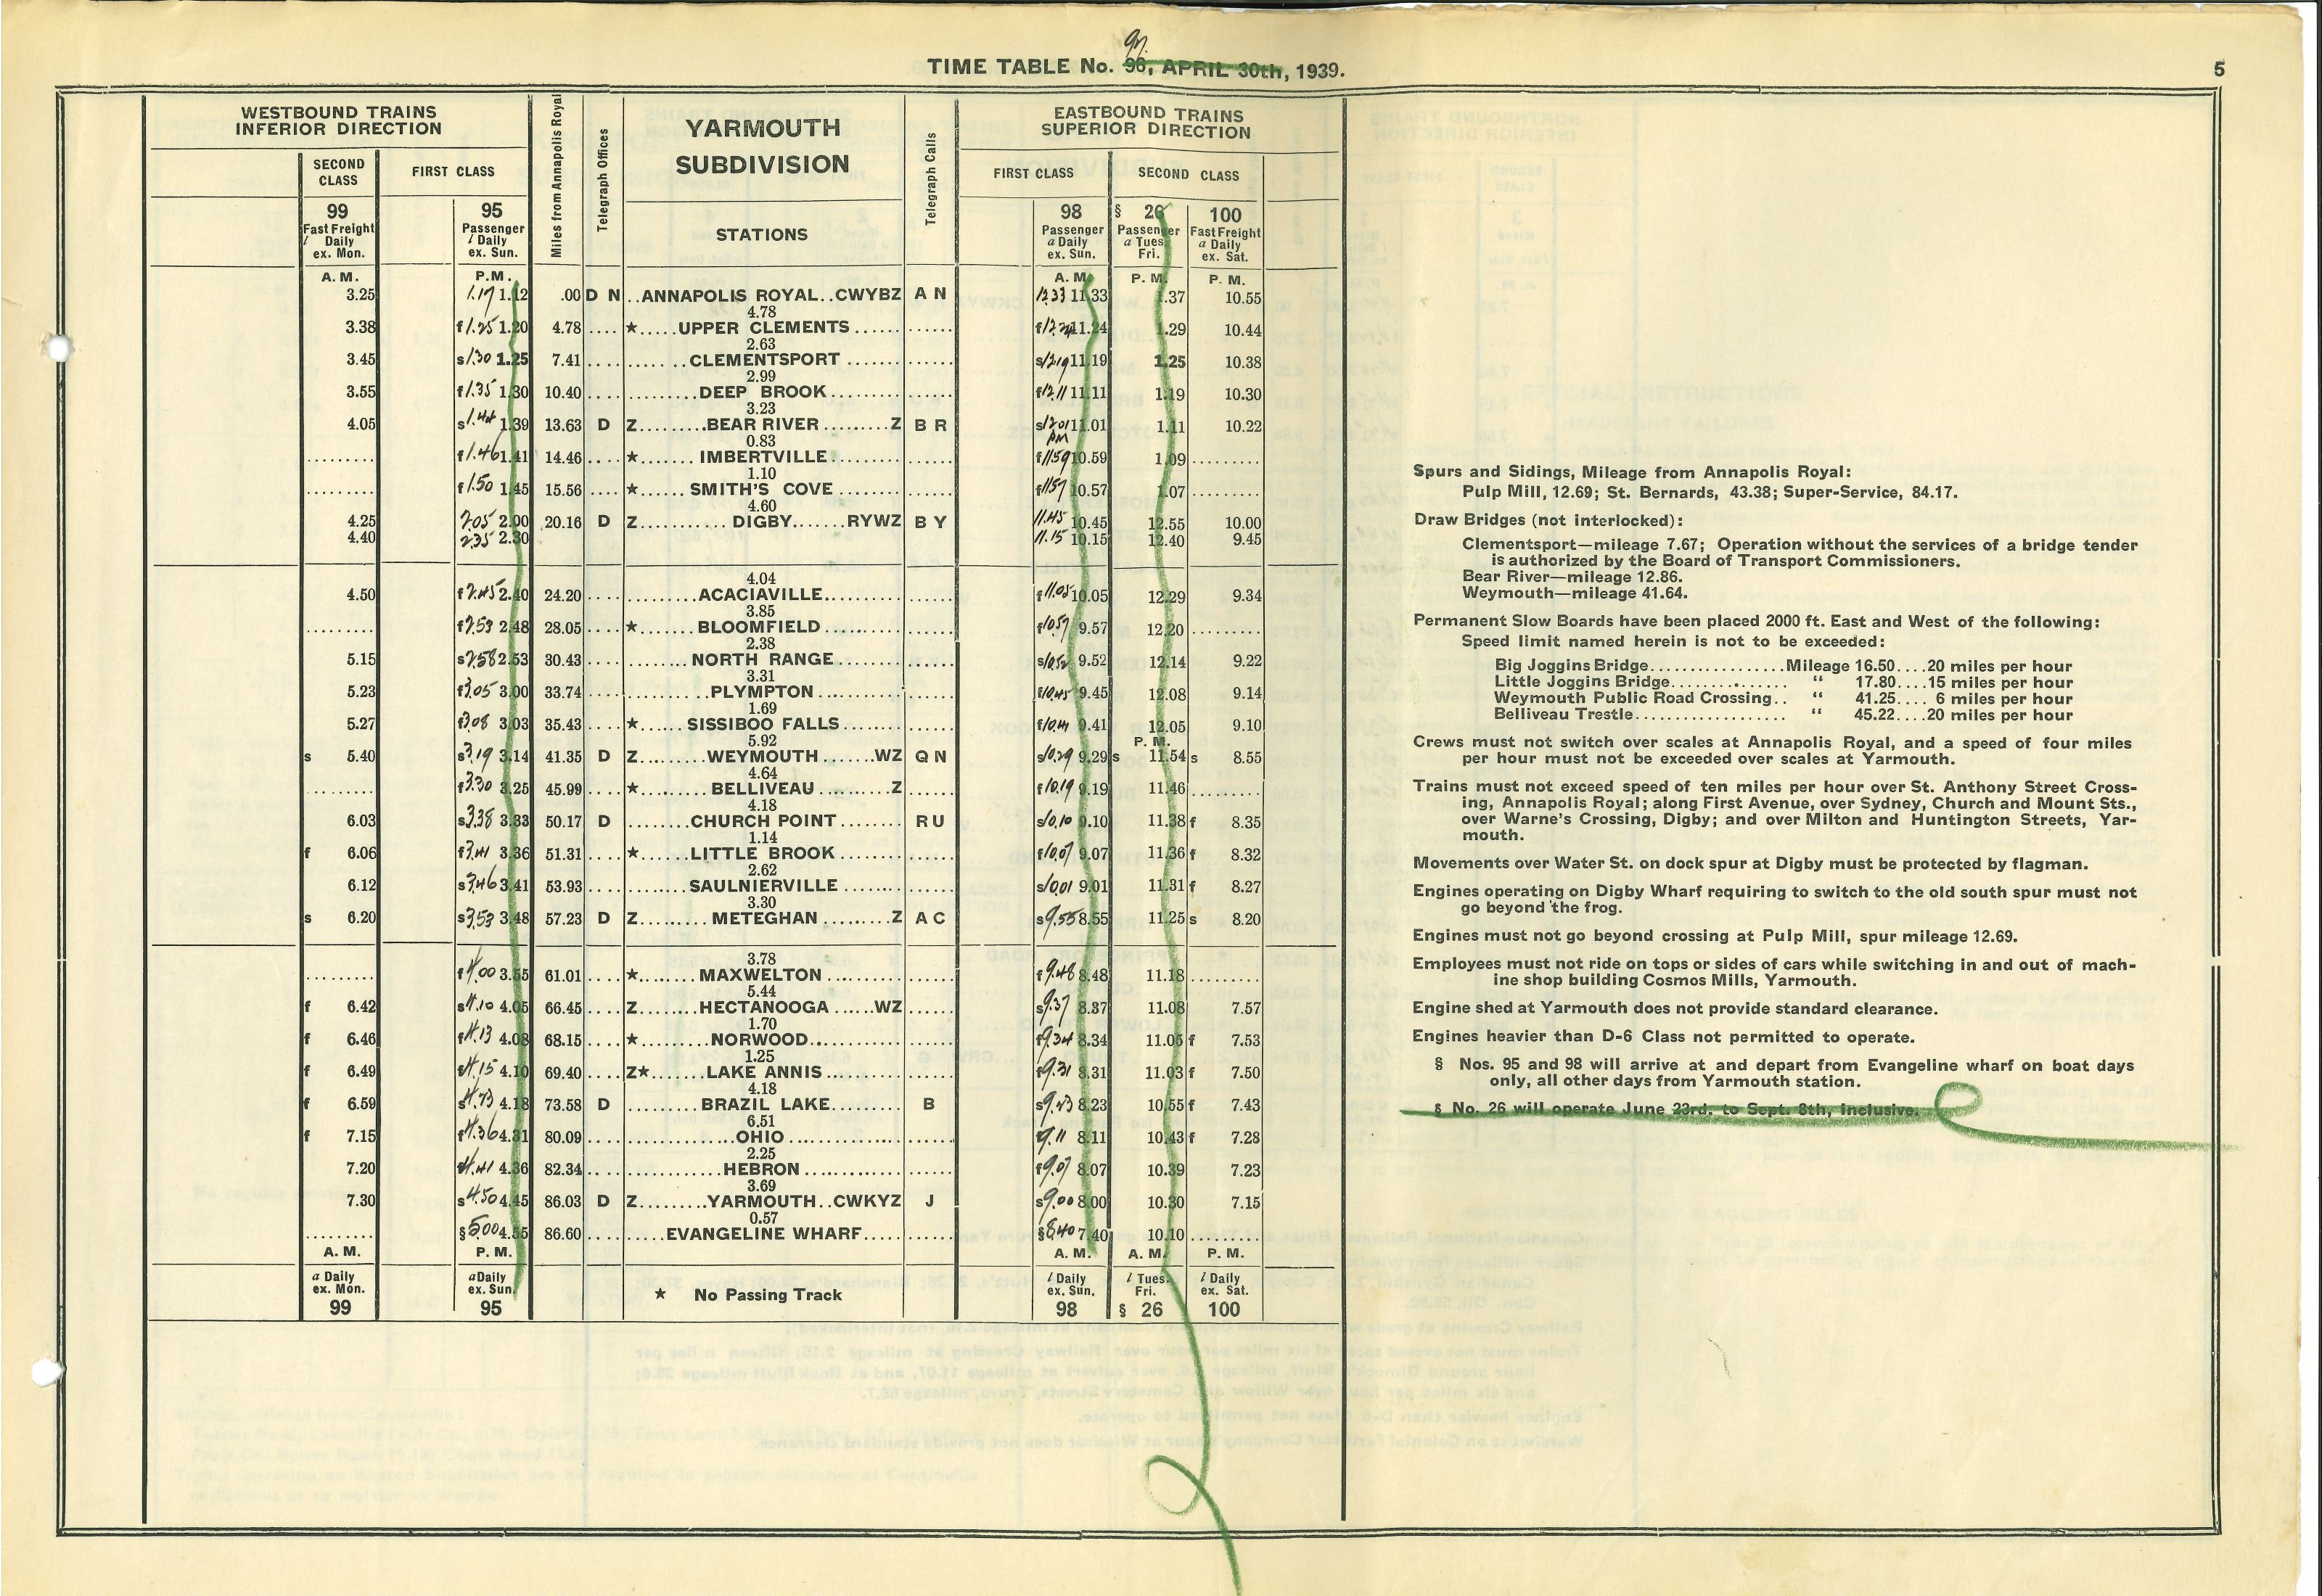 97.
TIME TABLE No. 96, APRIL 30th, 1939.
5
WESTBOUND TRAINS
INFERIOR DIRECTION
Miles from Annapolis Royal
Telegraph Offices
YARMOUTH
SUBDIVISION
Telegraph Calls
EASTBOUND TRAINS
SUPERIOR DIRECTION
SECOND CLASS FIRST CLASS STATIONS FIRST CLASS SECOND CLASS
99 95 98 § 26 100
Fast Freight Passenger Passenger Passenger Fast Freight
l Daily l Daily a Daily a Tues. a Daily
ex. Mon. ex. Sun. ex. Sun. Fri. ex. Sat.
A. M. P. M. A. M. P. M. P. M.
3.25 1.17 1.12 .00 D N ..ANNAPOLIS ROYAL..CWYBZ A N 12.33 11.33 1.37 10.55
4.78
3.38 f 1.25 1.20 4.78 .... ★.....UPPER CLEMENTS...... ...... f 12.24 11.24 1.29 10.44
2.63
3.45 s 1.30 1.25 7.41 .... .......CLEMENTSPORT....... ...... s 12.19 11.19 1.25 10.38
2.99
3.55 f 1.35 1.30 10.40 .... .........DEEP BROOK......... ...... f 12.11 11.11 1.19 10.30
3.23
4.05 s 1.44 1.39 13.63 D Z.........BEAR RIVER.........Z B R s 12.01 11.01 1.11 10.22
0.83 PM
......... f 1.46 1.41 14.46 .... ★.......IMBERTVILLE......... ...... f 11.59 10.59 1.09 .........
1.10
......... f 1.50 1.45 15.56 .... ★......SMITH'S COVE........ ...... f 11.57 10.57 1.07 .........
4.60
4.25 2.05 2.00 20.16 D Z...........DIGBY.......RYWZ B Y 11.45 10.45 12.55 10.00
4.40 2.35 2.30 11.15 10.15 12.40 9.45
4.04
4.50 f 2.45 2.40 24.20 .... .........ACACIAVILLE.......... ...... f 11.05 10.05 12.29 9.34
3.85
......... f 2.53 2.48 28.05 .... ★.......BLOOMFIELD.......... ...... f 10.57 9.57 12.20 .........
2.38
5.15 s 2.58 2.53 30.43 .... ........NORTH RANGE......... ...... s 10.52 9.52 12.14 9.22
3.31
5.23 f 3.05 3.00 33.74 .... ..........PLYMPTON.......... ...... f 10.45 9.45 12.08 9.14
1.69
5.27 f 3.08 3.03 35.43 .... ★......SISSIBOO FALLS....... ...... f 10.41 9.41 12.05 9.10
5.92 P. M.
s 5.40 s 3.19 3.14 41.35 D Z........WEYMOUTH.......WZ Q N s 10.29 9.29 s 11.54 s 8.55
4.64
......... f 3.30 3.25 45.99 .... ★.........BELLIVEAU.........Z ...... f 10.19 9.19 11.46 .........
4.18
6.03 s 3.38 3.33 50.17 D ........CHURCH POINT........ R U s 10.10 9.10 11.38 f 8.35
1.14
f 6.06 f 3.41 3.36 51.31 .... ★......LITTLE BROOK........ ...... f 10.07 9.07 11.36 f 8.32
2.62
6.12 s 3.46 3.41 53.93 .... ........SAULNIERVILLE........ ...... s 10.01 9.01 11.31 f 8.27
3.30
s 6.20 s 3.53 3.48 57.23 D Z.........METEGHAN.........Z A C s 9.55 8.55 11.25 s 8.20
3.78
......... f 4.00 3.55 61.01 .... ★........MAXWELTON.......... ...... f 9.48 8.48 11.18 .........
5.44
f 6.42 s 4.10 4.05 66.45 .... Z........HECTANOOGA......WZ ...... s 9.37 8.37 11.08 7.57
1.70
f 6.46 f 4.13 4.08 68.15 .... ★.........NORWOOD........... ...... f 9.34 8.34 11.05 f 7.53
1.25
f 6.49 f 4.15 4.10 69.40 .... Z★.......LAKE ANNIS.......... ...... f 9.31 8.31 11.03 f 7.50
4.18
f 6.59 s 4.23 4.18 73.58 D .........BRAZIL LAKE......... B s 9.23 8.23 10.55 f 7.43
6.51
f 7.15 f 4.36 4.31 80.09 .... ..............OHIO.............. ...... f 9.11 8.11 10.43 f 7.28
2.25
7.20 f 4.41 4.36 82.34 .... ............HEBRON............ ...... f 9.07 8.07 10.39 7.23
3.69
7.30 s 4.50 4.45 86.03 D Z.........YARMOUTH..CWKYZ J s 9.00 8.00 10.30 7.15
0.57
......... § 5.00 4.55 86.60 .... .....EVANGELINE WHARF..... ...... § 8.40 7.40 10.10 .........
A. M. P. M. A. M. A. M. P. M.
a Daily a Daily l Daily l Tues. l Daily
ex. Mon. ex. Sun. ★ No Passing Track ex. Sun. Fri. ex. Sat.
99 95 98 § 26 100
Spurs and Sidings, Mileage from Annapolis Royal:
Pulp Mill, 12.69; St. Bernards, 43.38; Super-Service, 84.17.
Draw Bridges (not interlocked):
Clementsport—mileage 7.67; Operation without the services of a bridge tender
is authorized by the Board of Transport Commissioners.
Bear River—mileage 12.86.
Weymouth—mileage 41.64.
Permanent Slow Boards have been placed 2000 ft. East and West of the following:
Speed limit named herein is not to be exceeded:
Big Joggins Bridge................Mileage 16.50....20 miles per hour
Little Joggins Bridge.............. " 17.80....15 miles per hour
Weymouth Public Road Crossing.. " 41.25.... 6 miles per hour
Belliveau Trestle.................. " 45.22....20 miles per hour
Crews must not switch over scales at Annapolis Royal, and a speed of four miles
per hour must not be exceeded over scales at Yarmouth.
Trains must not exceed speed of ten miles per hour over St. Anthony Street Cross-
ing, Annapolis Royal; along First Avenue, over Sydney, Church and Mount Sts.,
over Warne's Crossing, Digby; and over Milton and Huntington Streets, Yar-
mouth.
Movements over Water St. on dock spur at Digby must be protected by flagman.
Engines operating on Digby Wharf requiring to switch to the old south spur must not
go beyond the frog.
Engines must not go beyond crossing at Pulp Mill, spur mileage 12.69.
Employees must not ride on tops or sides of cars while switching in and out of mach-
ine shop building Cosmos Mills, Yarmouth.
Engine shed at Yarmouth does not provide standard clearance.
Engines heavier than D-6 Class not permitted to operate.
§ Nos. 95 and 98 will arrive at and depart from Evangeline wharf on boat days
only, all other days from Yarmouth station.
§ No. 26 will operate June 23rd. to Sept. 8th, inclusive.